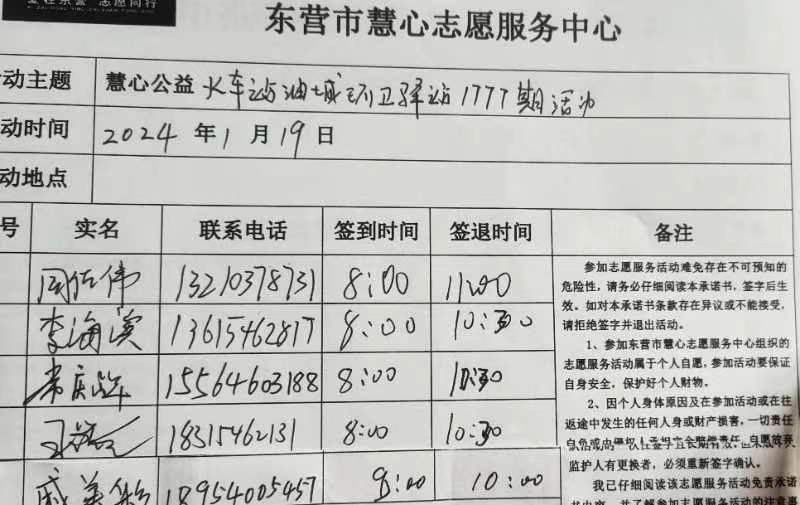 志愿同行
东营市慧心志愿服务中心
动主题 慧心公益 火车站油城环卫驿站1777期活动
动时间 2024年1月19日
动地点
号 实名 联系电话 签到时间 签退时间 备注
周佐伟 13210378731 8:00 11:00
李海滨 13615462817 8:00 10:30
15564603188 8:00 10:30
王 18315462131 8:00 10:30
戚美 18954005457 8:00 10:00
参加志愿服务活动难免存在不可预知的
危险性，请务必仔细阅读本承诺书，签字后生
效。如对本承诺书条款存在异议或不能接受，
请拒绝签字并退出活动。
1、参加东营市慧心志愿服务中心组织的
志愿服务活动属于个人自愿，参加活动要保证
自身安全，保护好个人财物。
2、因个人身体原因及在参加活动或在往
返途中发生的任何人身或财产损害，一切责任
监护人有更换者，必须重新签字确认。
我已仔细阅读该志愿服务活动免责承诺
书内容，并了解参加志愿服务活动的注意事